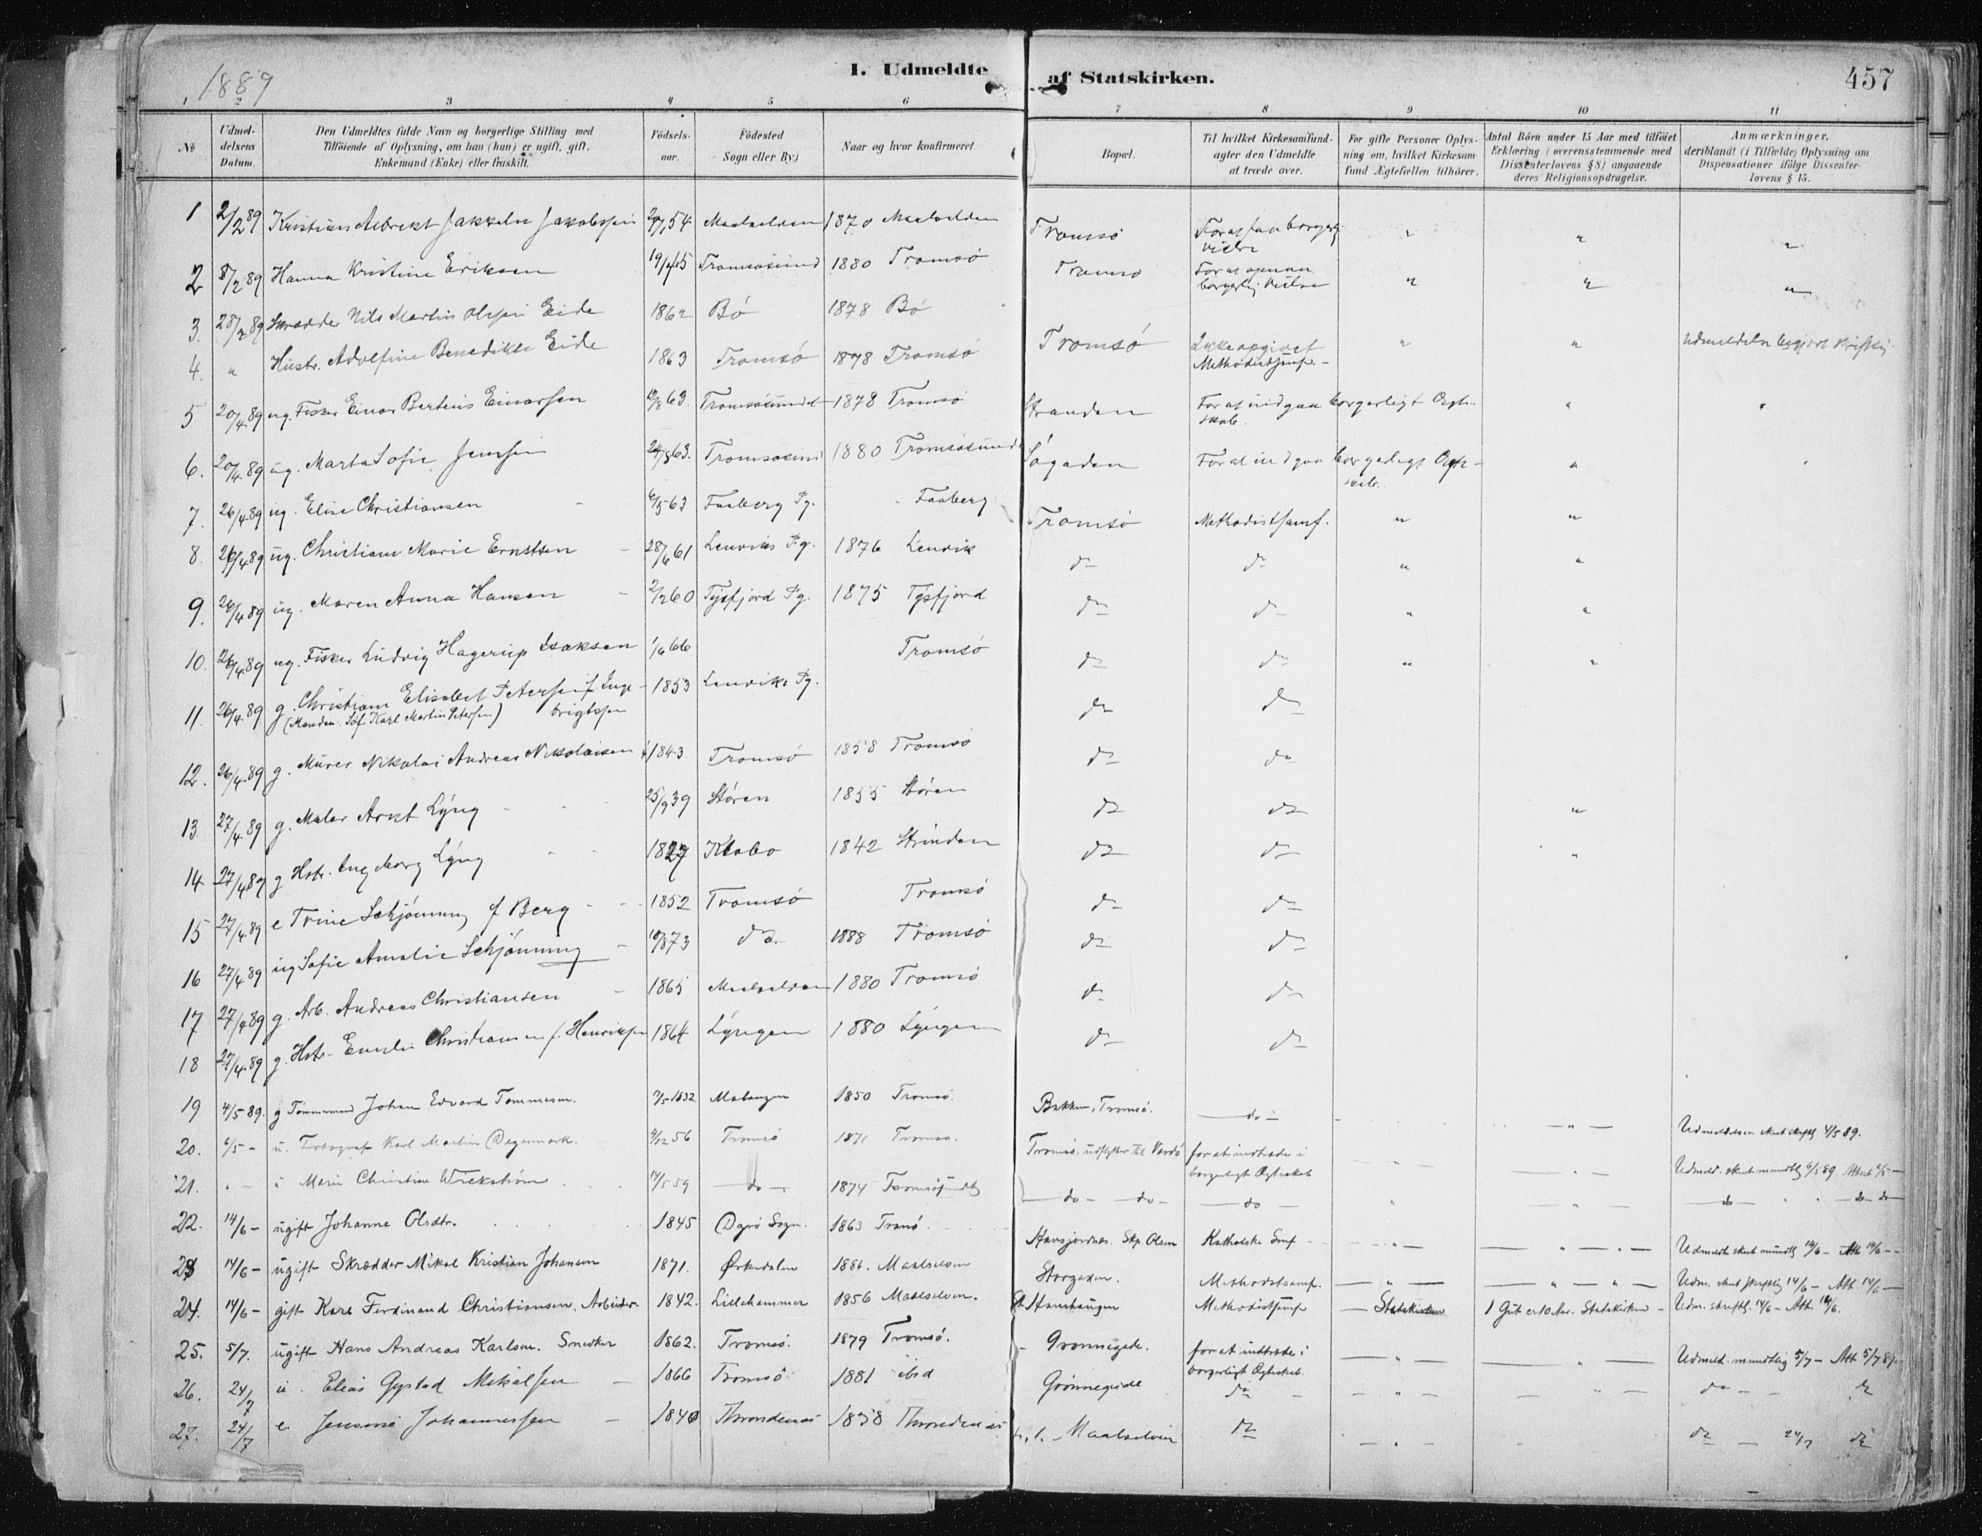 1889
I. Udmeldte af Statskirken.
457
1 2 3 4 5 6 7 8 9 10 11
No
Udmeldelsens Datum.
Den Udmeldtes fulde Navn og borgerlige Stilling med Tilföiende af Oplysning, om han (hun) er ugift, gift, Enkemand (Enke) eller fraskilt.
Födselsaar.
Födested Sogn eller By)
Naar og hvor konfirmeret
Bopæl.
Til hvilket Kirkesamfund agter den Udmeldte at træde over.
For gifte Personer Oplysning om, hvilket Kirkesamfund Ægtefællen tilhörer.
Antal Börn under 15 Aar med tilföiet Erklæring (overensstemmende med Dissenterlovens § 8) angaaende deres Religionsopdragelse.
Anmærkninger, deriblandt (i Tilfælde) Oplysning om Dispensationer ifölge Dissenterlovens § 15.
1 2/2 89 Kristian Albrekt Jakobsen 54 Maalselven 1870 Maalselven Tromsö " " "
2 8/2 89 Hanna Kristine Eriksen Tromsösund 1880 Tromsö Tromsö borgerlig Vielse " " "
3. 28/2 89 Skrædder Nils Martin Olsen Eide 1862 Bö 1878 Bö
4. " Hustr. Adolfine Benedikte Eide 1863 Tromsö 1878 Tromsö Tromsö Ikke opgivet Methodistsamf. " " Udmeldelse begjært skriftlig
5 20/4 89 ug. Fisker Einar Berteus Einarsen 63. Tromsösund 1878 Tromsö Stranden For at indgaa borgerligt Ægteskab. "
6. 20/4 89 ug. Marta Sofie Jensen 24/8 63. Tromsösund 1880 Tromsösund Sögaden For at indgaa borgerligt Ægteskab. "
7. 26/4 89 ug. Elise Christiansen 6/5 63 Faaberg Pg. Faaberg Tromsö Methodistsamf. " "
8. 26/4 89 ug. Christian Marie Ernstsen 28/6 61 Lenviks Pg. 1876 Lenvik do do " "
9. 26/4 89 ug. Maren Anna Hansen 2/12 60 Tysfjord Pg. 1875 Tysfjord do do " "
10. 26/4 89 ug. Fisker Ludvig Hagerup Isaksen 66 Tromsö do do " "
11. 26/4 89 g. Christiane Elisabet Petersen f. Ingebrigtsen (Manden: Karl Martin Petersen) 1853 Lenviks Pg. do do
12. 26/4 89 g. Murer Nikolai Andreas Nikolaisen 1843 Tromsö 1858 Tromsö do do
13. 27/4 89 g. Maler Arnt Lyng 25/9 39 Stören 1855 Stören do do "
14 27/4 89 g Hstr. Ingeborg Lyng 1827 Klæbo 1842 Strinden do do "
15 27/4 89 e Trine Schjönning f Berg 1852 Tromsö Tromsö do do
16 27/4 89 ug Sofie Amalie Schjönning 73 do. 1888 Tromsö do do
17 27/4 89 g. Arb. Andreas Christiansen 1865 Maalselven 1880 Tromsö do do
18 27/4 89 g. Hstr. Emelie Christiansen f. Henriksen 1864 Lyngen 1880 Lyngen do do
19 4/5 89. g Tömmermand Johan Edvard Tommesen. 1832 Malangen 1850 Tromsö. Bakken, Tromsö. do — " — Udmeldelsen skeet skriftlig 4/5 89.
20. 6/5 – u. Fotograf Karl Martin Degermark. 4/12 56 Tromsö 1871 Tromsö. Tromsö. udflytter til Vardö for at indtræde i borgerligt Ægteskab Udmeld. skeet mundtlig 6/5 89 Attest 6/5 –
21. " – Marie Christine Wickström 59 do 1874 Tromsösund do – do – do – do – do do
22. 14/6 – ugift Johanne Olsdtr. 1845 Dyrö Sogn. 1863 Tranö. Skp. Olsen Katholske Smf Udmeldt skeet mundtl 14/6 – Att 14/6 –
23 14/6 – ugift Skrædder Mikal Kristian Johansen 1871. Örkedalen 1886. Maalselven Storgaden. Methodistsamf. Udm. skeet skriftlig 14/6 – Att. 14/6 –
24. 14/6 – gift Karl Ferdinand Christiansen, Arbeider. 1842. Lillehammer 1856 Maalselven. Methodistsamf – Statskirken 1 Gut er 10 Aar. Statskirken – Udm. skriftl. 14/6 – Att 14/6.
25. 5/7. ugift Hans Andreas Karlsen. Snedker 1862. Tromsö. 1879 Tromsö. Grönnegade. for at indtræde i borgerligt Ægteskab. Udmeld. mundtlig 5/7 – Att 5/7 89
26. 24/7 u. Elias Gystad Mikalsen 1866 Tromsö 1881 ibid Grönnegade do do – do
27. 24/7 e Johannessen 1840 Throndenæs 1858 Throndenæs Maalselven do do — 24/7 do